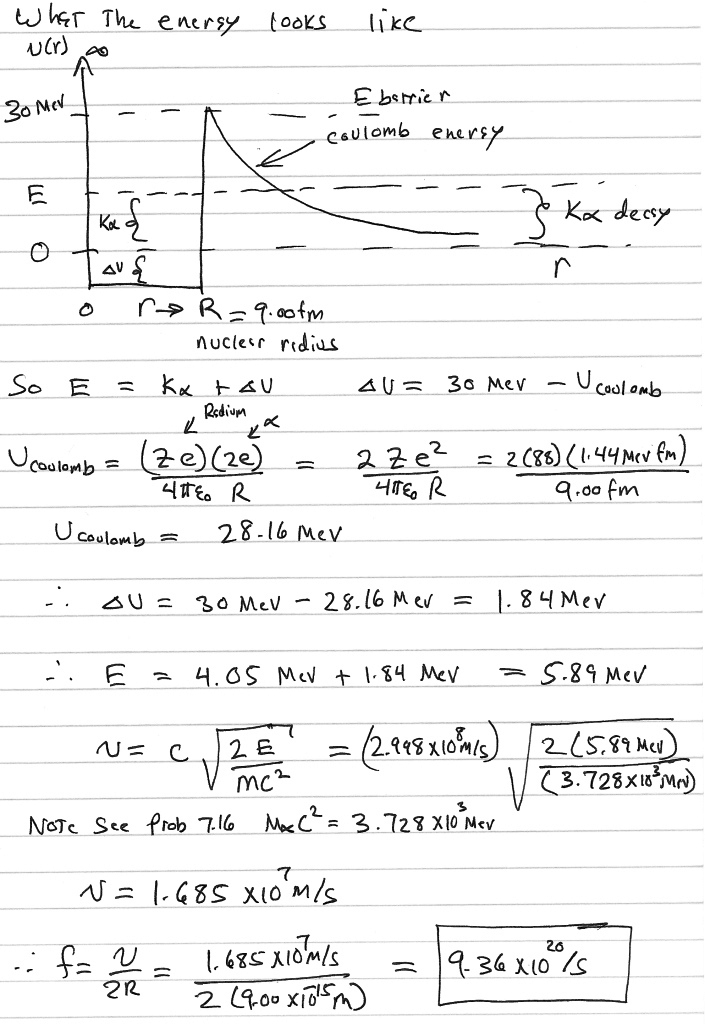 What The energy looks like
U(r) ∞
30 MeV E barrier
coulomb energy
E
Kα { } Kα decay
0
ΔU { r
0 r → R = 9.00fm
nuclear radius
So E = Kα + ΔU ΔU = 30 MeV - Ucoulomb
Radium α
Ucoulomb = (Ze)(2e) / 4πε₀ R = 2Ze² / 4πε₀ R = 2(88)(1.44 MeV fm) / 9.00 fm
Ucoulomb = 28.16 MeV
∴ ΔU = 30 MeV - 28.16 MeV = 1.84 MeV
∴ E = 4.05 MeV + 1.84 MeV = 5.89 MeV
v = c √(2E / mc²) = (2.998 x10⁸ m/s) √(2(5.89 MeV) / (3.728 x10³ MeV))
Note See Prob 7.16 MαC² = 3.728 x10³ MeV
v = 1.685 x10⁷ m/s
∴ f = v / 2R = 1.685 x10⁷ m/s / 2(9.00 x10⁻¹⁵ m) = 9.36 x10²⁰ /s